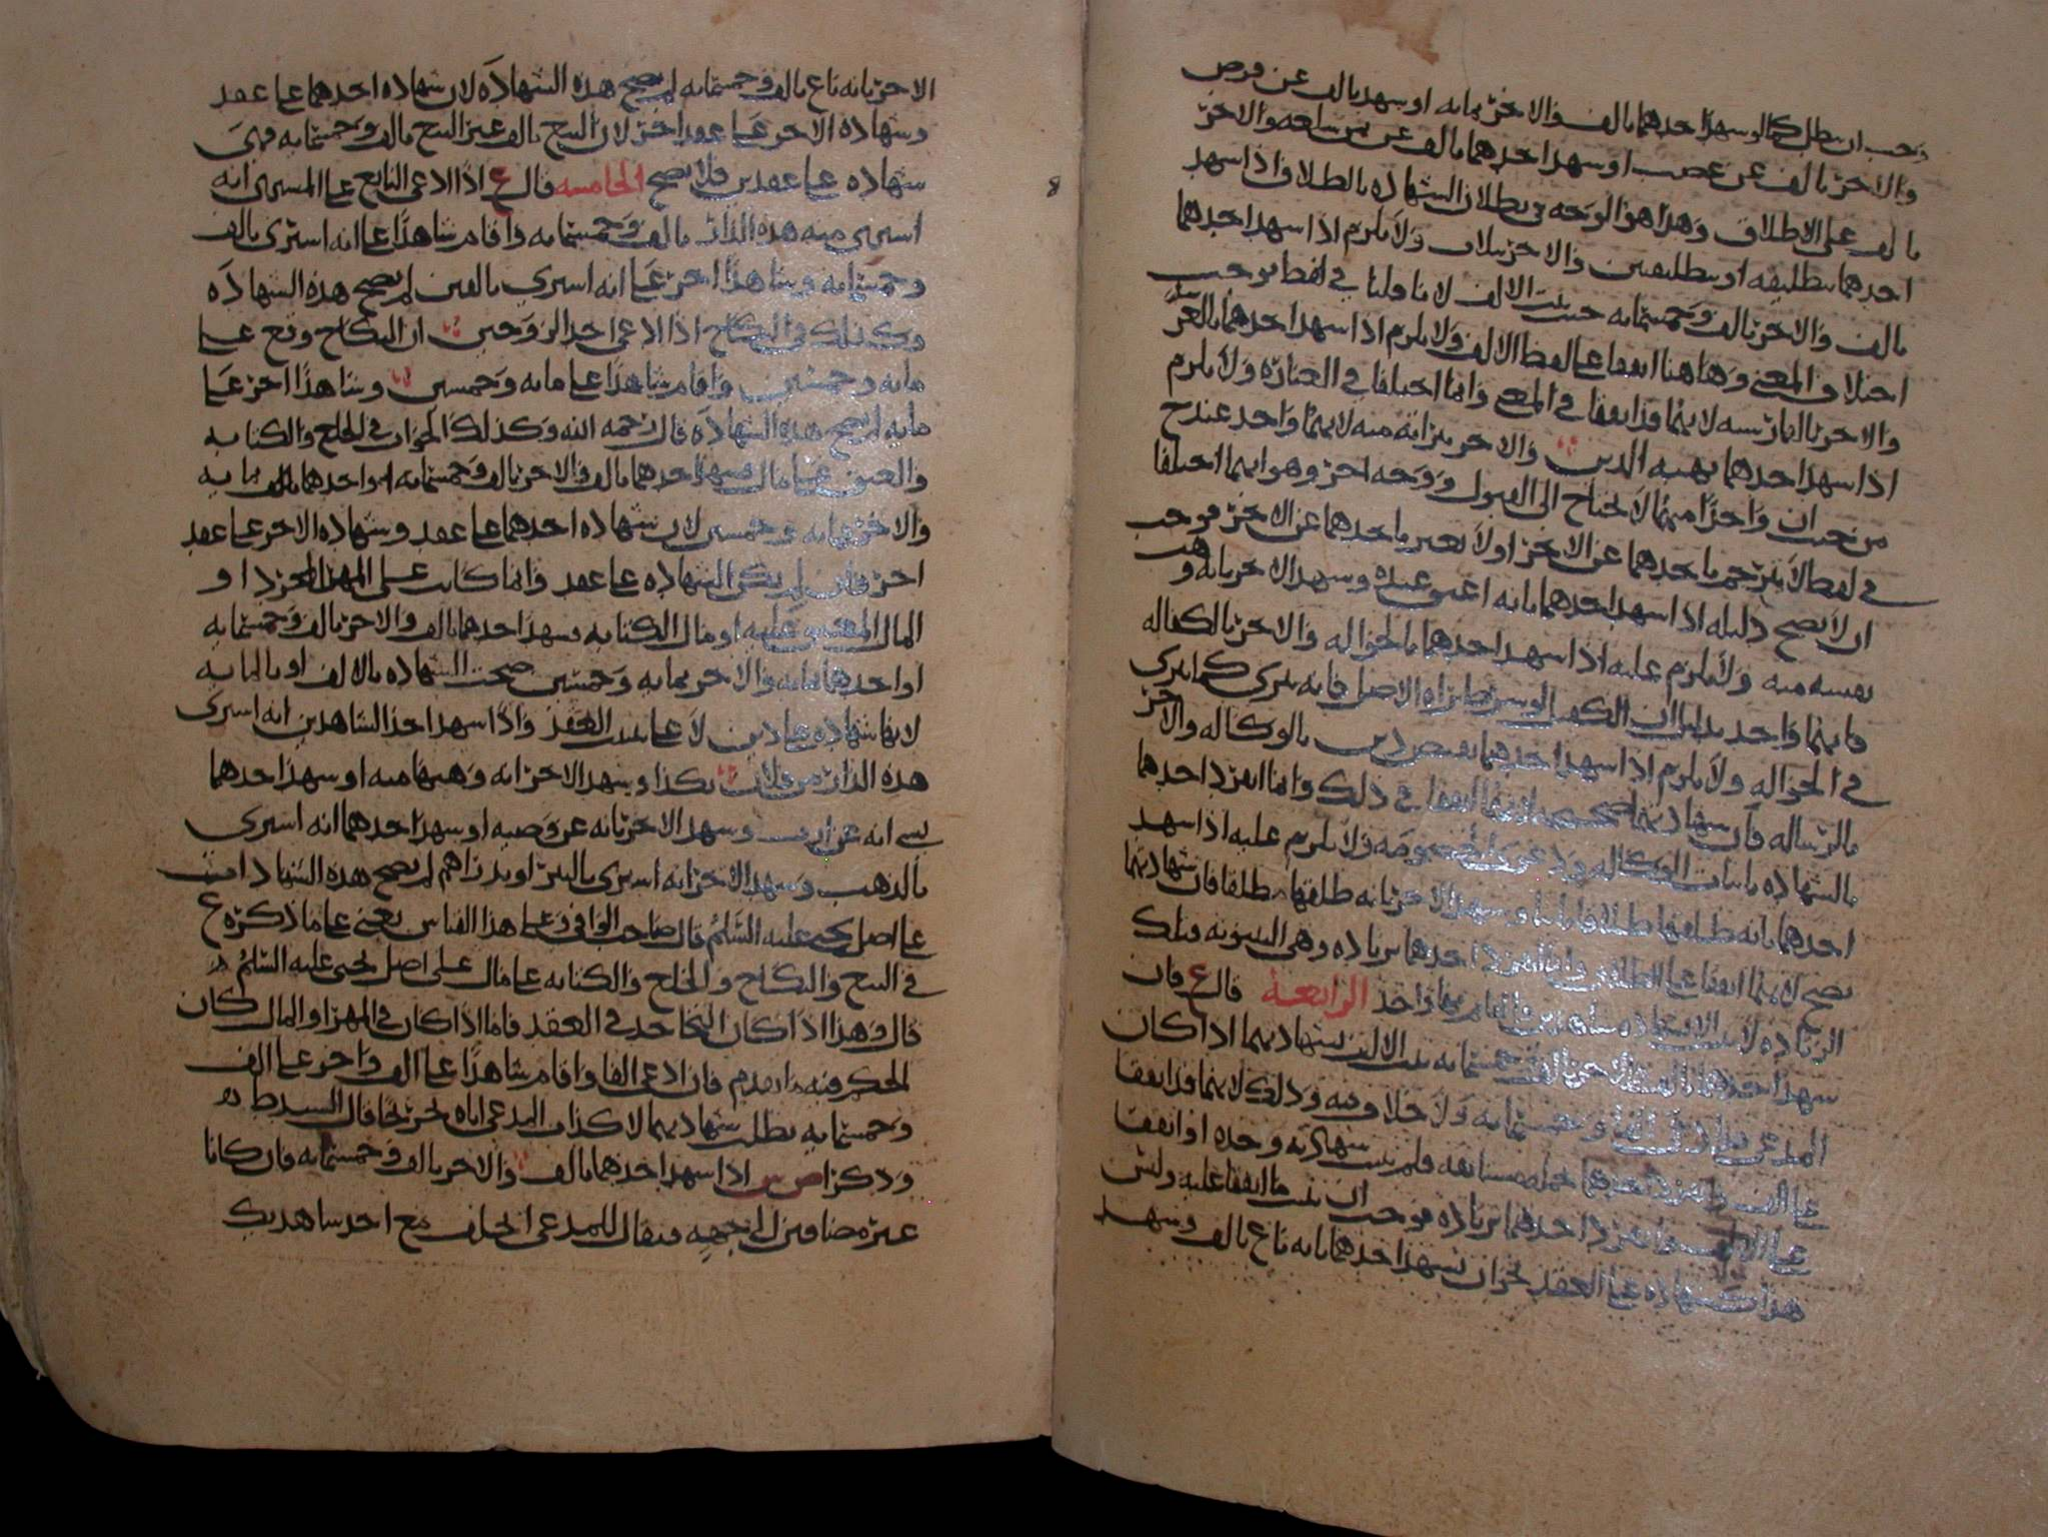 وجب ان يبطل كما لو شهد احدهما بالف والاخر بمايه او شهد بالف عن قرض
والاخر بالف عن غصب او شهد احدهما بالف عن ثمن سلعه والاخر
بالف على الاطلاق وهذا هو الوجه في بطلان الشهاده بالطلاق اذا شهد
احدهما بتطليقه او بتطليقتين والاخر بثلاث ولا يلزم اذا شهد احدهما
بالف والاخر بالف وخمسمايه حيث يثبت الالف لانا قلنا في لفظ يوجب
اختلاف المعنى وهاهنا اتفقا على لفظ الالف ولا يلزم اذا شهد احدهما بالعربيه
والاخر بالفارسيه لانهما قد اتفقا في المعنى وانما اختلفا في العباره ولا يلزم
اذا شهد احدهما بهبه الدين والاخر ببرائه منه لانهما واحد عند ح
من حيث ان واحدا منهما لا يحتاج الى القبول ووجه اخر وهو انهما اختلفا
في لفظ لا يترجم باحدهما عن الاخر ولا يعبر باحدهما عن الاخر فوجب
ان لا يصح دليله اذا شهد احدهما بانه اعتق عبده وشهد الاخر بانه وهب
نفسه منه ولا يلزم عليه اذا شهد احدهما بالحواله والاخر بالكفاله
فانهما واحد بدليل ان الكفيل لو شرط براه الاصل فانه يبرى كما يبرى
في الحواله ولا يلزم اذا شهد احدهما بقبض دين بالوكاله والاخر
بالرساله فان شهادتهما لانهما اتفقا في ذلك وانما انفرد احدهما
بالشهاده باثبات الوكاله ولا يلزم عليه اذا شهد
احدهما بانه طلقها طلاقا وشهد الاخر بانه طلقها مطلقا فان شهادتهما
تصح لانهما اتفقا على الطلاق وانما انفرد احدهما بزياده وهي البينونه فتلك
الزياده لا تثبت الرابعة قال ع فان
شهد احدهما بالف والاخر بالف وخمسمايه يثبت الالف بشهادتهما اذا كان
المدعي يدعي الفا وخمسمايه ولا خلاف فيه وذلك لانهما قد اتفقا
على الالف وانفرد احدهما فلم يثبت بشهادته وحده او اتفقا
على الالف وانفرد احدهما بزياده فوجب ان يثبت ما اتفقا عليه وليس
هو شهاده على العقد نحو ان يشهد احدهما بانه باع بالف وشهد
الاخر بانه باع بالف وخمسمايه لم يصح هذه الشهاده لان شهاده احدهما على عقد
وشهاده الاخر على عقد اخر لان البيع بالف غير البيع بالف وخمسمايه فهي
شهاده على عقدين فلا يصح الخامسه قال ع اذا ادعى البايع على المشتري انه
اشترى منه هذه الدار بالف وخمسمايه واقام شاهدا على انه اشترى بالف
وخمسمايه وشاهدا اخر على انه اشترى بالفين لم يصح هذه الشهاده
وكذلك في النكاح اذا ادعى احد الزوجين ان النكاح وقع على
مايه وخمسين واقام شاهدا على مايه وخمسين وشاهدا اخر على
مايه لم يصح هذه الشهاده قال رحمه الله وكذلك الجواب في الخلع والكتابه
والعتق على مال فشهد احدهما بالف والاخر بالف وخمسمايه او احدهما بمايه
والاخر بمايه وخمسين لان شهاده احدهما على عقد وشهاده الاخر على عقد
اخر فان لم يكن الشهاده على عقد وانما كانت على المهر المجرد او
المال المعتق عليه او مال الكتابه فشهد احدهما بالف والاخر بالف وخمسمايه
او احدهما بمايه والاخر بمايه وخمسين صحت الشهاده بالالف او بالمايه
لانها شهاده على دين لا على عقد واذا شهد احد الشاهدين انه اشترى
هذه الدار من فلان بكذا وشهد الاخر انه وهبها منه او شهد احدهما
بشي انه عن ارث وشهد الاخر بانه عن وصيه او شهد احدهما انه اشترى
بالذهب وشهد الاخر انه اشترى بالبر او بدراهم لم يصح هذه الشهادات
على اصل يحيى عليه السلام قال صاحب الوافي وعلى هذا القياس يعني على ما ذكره ع
في البيع والنكاح والخلع والكتابه على مال على اصل يحيى عليه السلام
قال وهذا اذا كان التجاحد في العقد فاما اذا كان في المهر او المال كان
الحكم فيه ما تقدم فان ادعى الفا واقام شاهدا على الف واخر على الف
وخمسمايه بطلت شهادتهما لاكذاب المدعي اياه تخريجا قال السيد ط
وذكر ص ش اذا شهد احدهما بالف والاخر بالف وخمسمايه فان كانا
غير مضافين الى جهه فيقال للمدعي احلف مع احد شاهديك